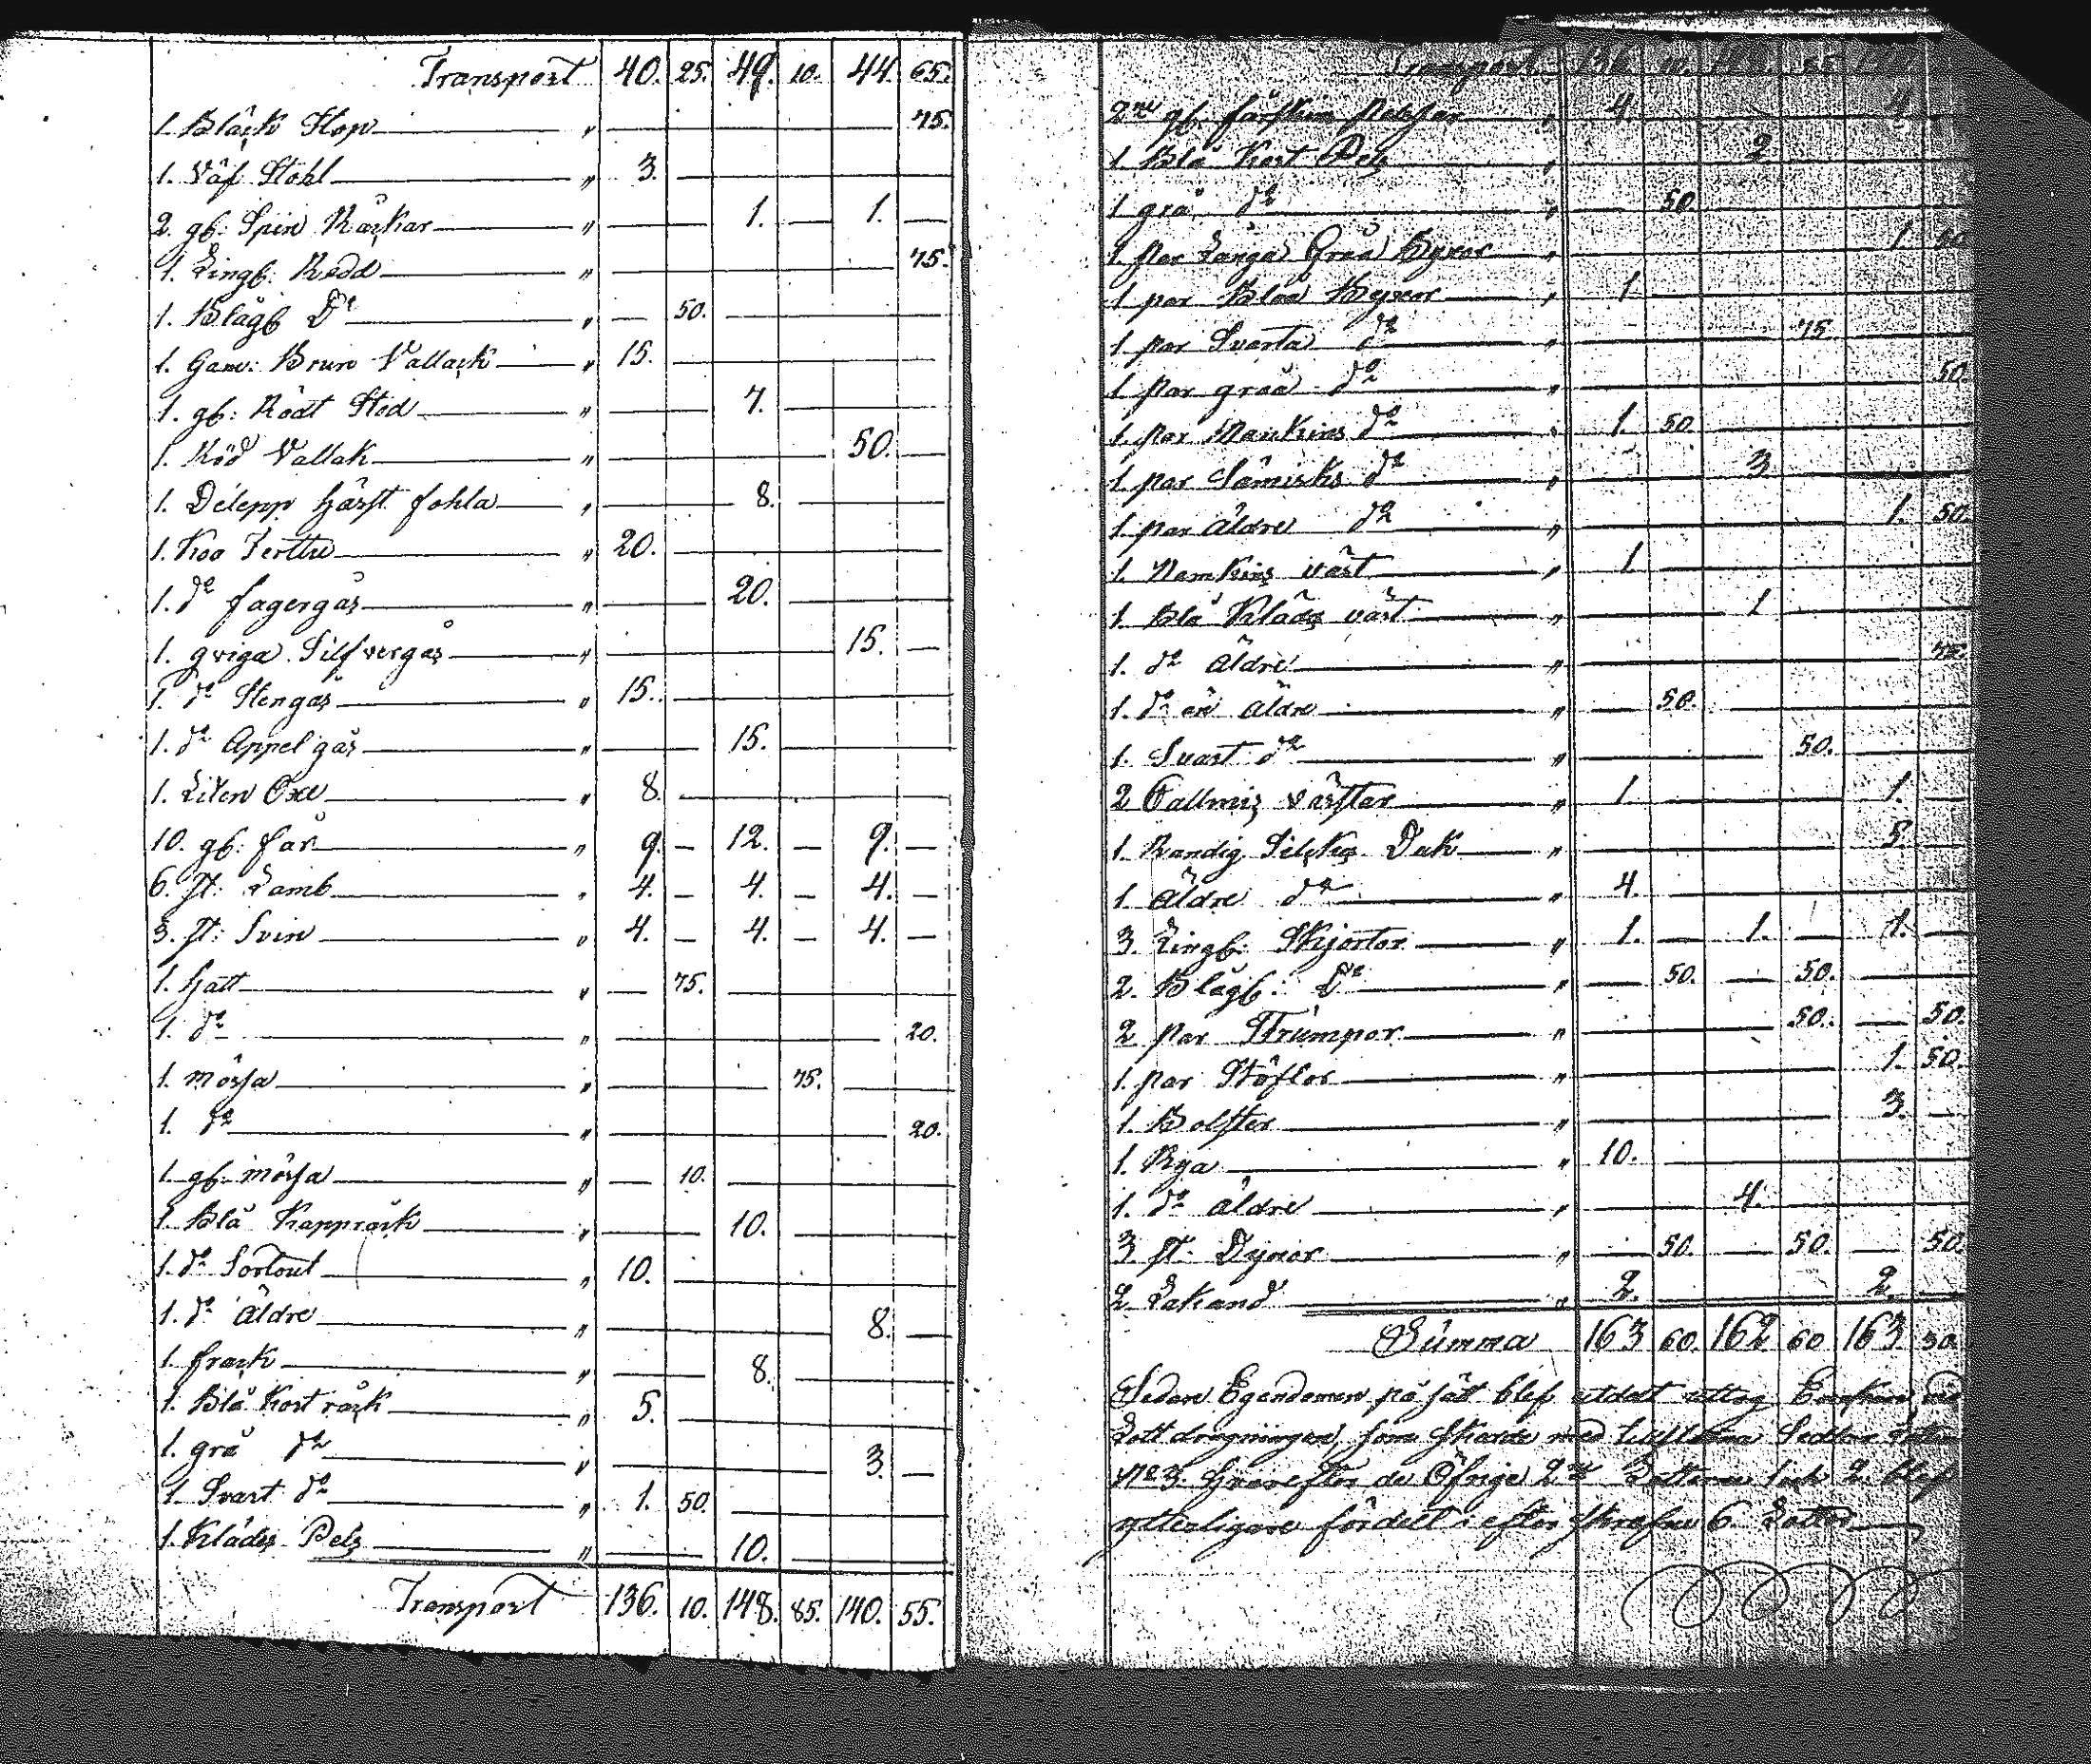 Transport 40. 25. 49. 10. 44. 65.
1. Bläck Stop " 75.
1. Väf Stohl " 3.
2. gb: Spin Råckar " 1. — 1. —
1. Lingb: Redd " 75.
1. Blågb D° " — 50.
1. Gam: Brun Vallack " 15.
1. gb: Rödt Stod " 7.
1. Röd Vallak " 50. —
1. Häst fohla " 8.
1. Koo Terttu " 20.
1. d° fagergås " 20.
1. qviga Silfvergås " 15. —
1. d° Stengås " 15.
1. d° Appelgås " 15.
1. Liten Oxe " 8.
10. gb: får " 9. — 12. — 9. —
6. st: Lamb " 4. — 4. — 4. —
3. st: Svin " 4. — 4. — 4. —
1. hatt " — 75.
1. d° " 20.
1. mössa " 75.
1. d° " 20.
1. gb: mössa " — 10.
1. Blå Kappråck " 10.
1. d° Sortout " 10.
1. d° äldre " 8. —
1. frack " 8.
1. Blå Kort råck " 5.
1. grå d° " 3. —
1. Svart d° " 1. 50.
1. Klädes Pels " 10.
Transport 136. 10. 148. 85. 140. 55.
Transport 136. 10.
2ne gb. fårskins pelssar " 4. 4.
1 Blå Kort Pels " 2
1 grå d° " — 50
1 par Långa Gråa Byxor " 1. 50
1 par Blåa Byxor " 1
1 par Svarta d° " 75.
1 par gråa d° " 50.
1. par Nankins d° " 1. 50
1. par Sämisks d° " 3
1 par äldre d° " 1. 50.
1. Nankins väst " 1
1 Blå Kläds väst " 1
1. d° äldre " 75.
1. d° än äldre " — 50.
1. Svart d° " 50.
2 Callmis västar " 1. 1. —
1. Randig Silkes Duk " 5. —
1 äldre d° " 4.
3. Lingb. Skjortor " 1. — 1. — 1. —
2. Blågb: D° " — 50. — 50.
2 par Strümpor " 50. — 50.
1. par Stöflor " 1. 50.
1. Bolster " 3. —
1. Rya " 10.
1. d° äldre " 4.
3. st: Dynor " — 50. — 50. — 50.
2 Lakand " 2. 2.
Summa 163 60. 162 60 163. 30.
Sedan Egendomen på sätt blef utdelt uttog Enckan vid
Lottdragningen, som skedde med Sedlar
N° 3. hvarefter de Öfrige 2ne Lotterna 2 blef
ytterligare fördelt i efter skrefne 6. Lotter